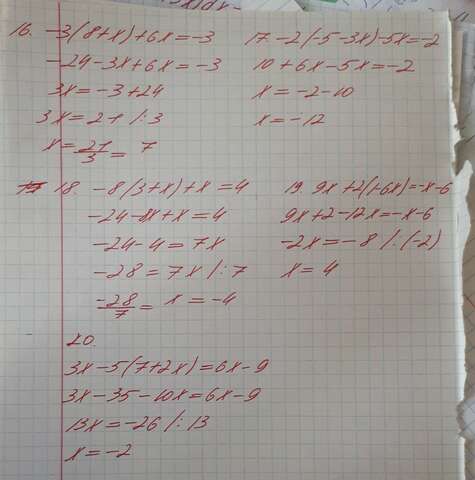 16. -3(8+x)+6x=-3
-24-3x+6x=-3
3x=-3+24
3x=21 /:3
x=21/3= 7
17. -2(-5-3x)-5x=-2
10+6x-5x=-2
x=-2-10
x=-12
18. -8(3+x)+x=4
-24-8x+x=4
-24-4=7x
-28=7x /:7
-28/7= x=-4
19. 9x+2(1-6x)=-x-6
9x+2-12x=-x-6
-2x=-8 /:(-2)
x=4
20.
3x-5(7+2x)=6x-9
3x-35-10x=6x-9
13x=-26 /:13
x=-2